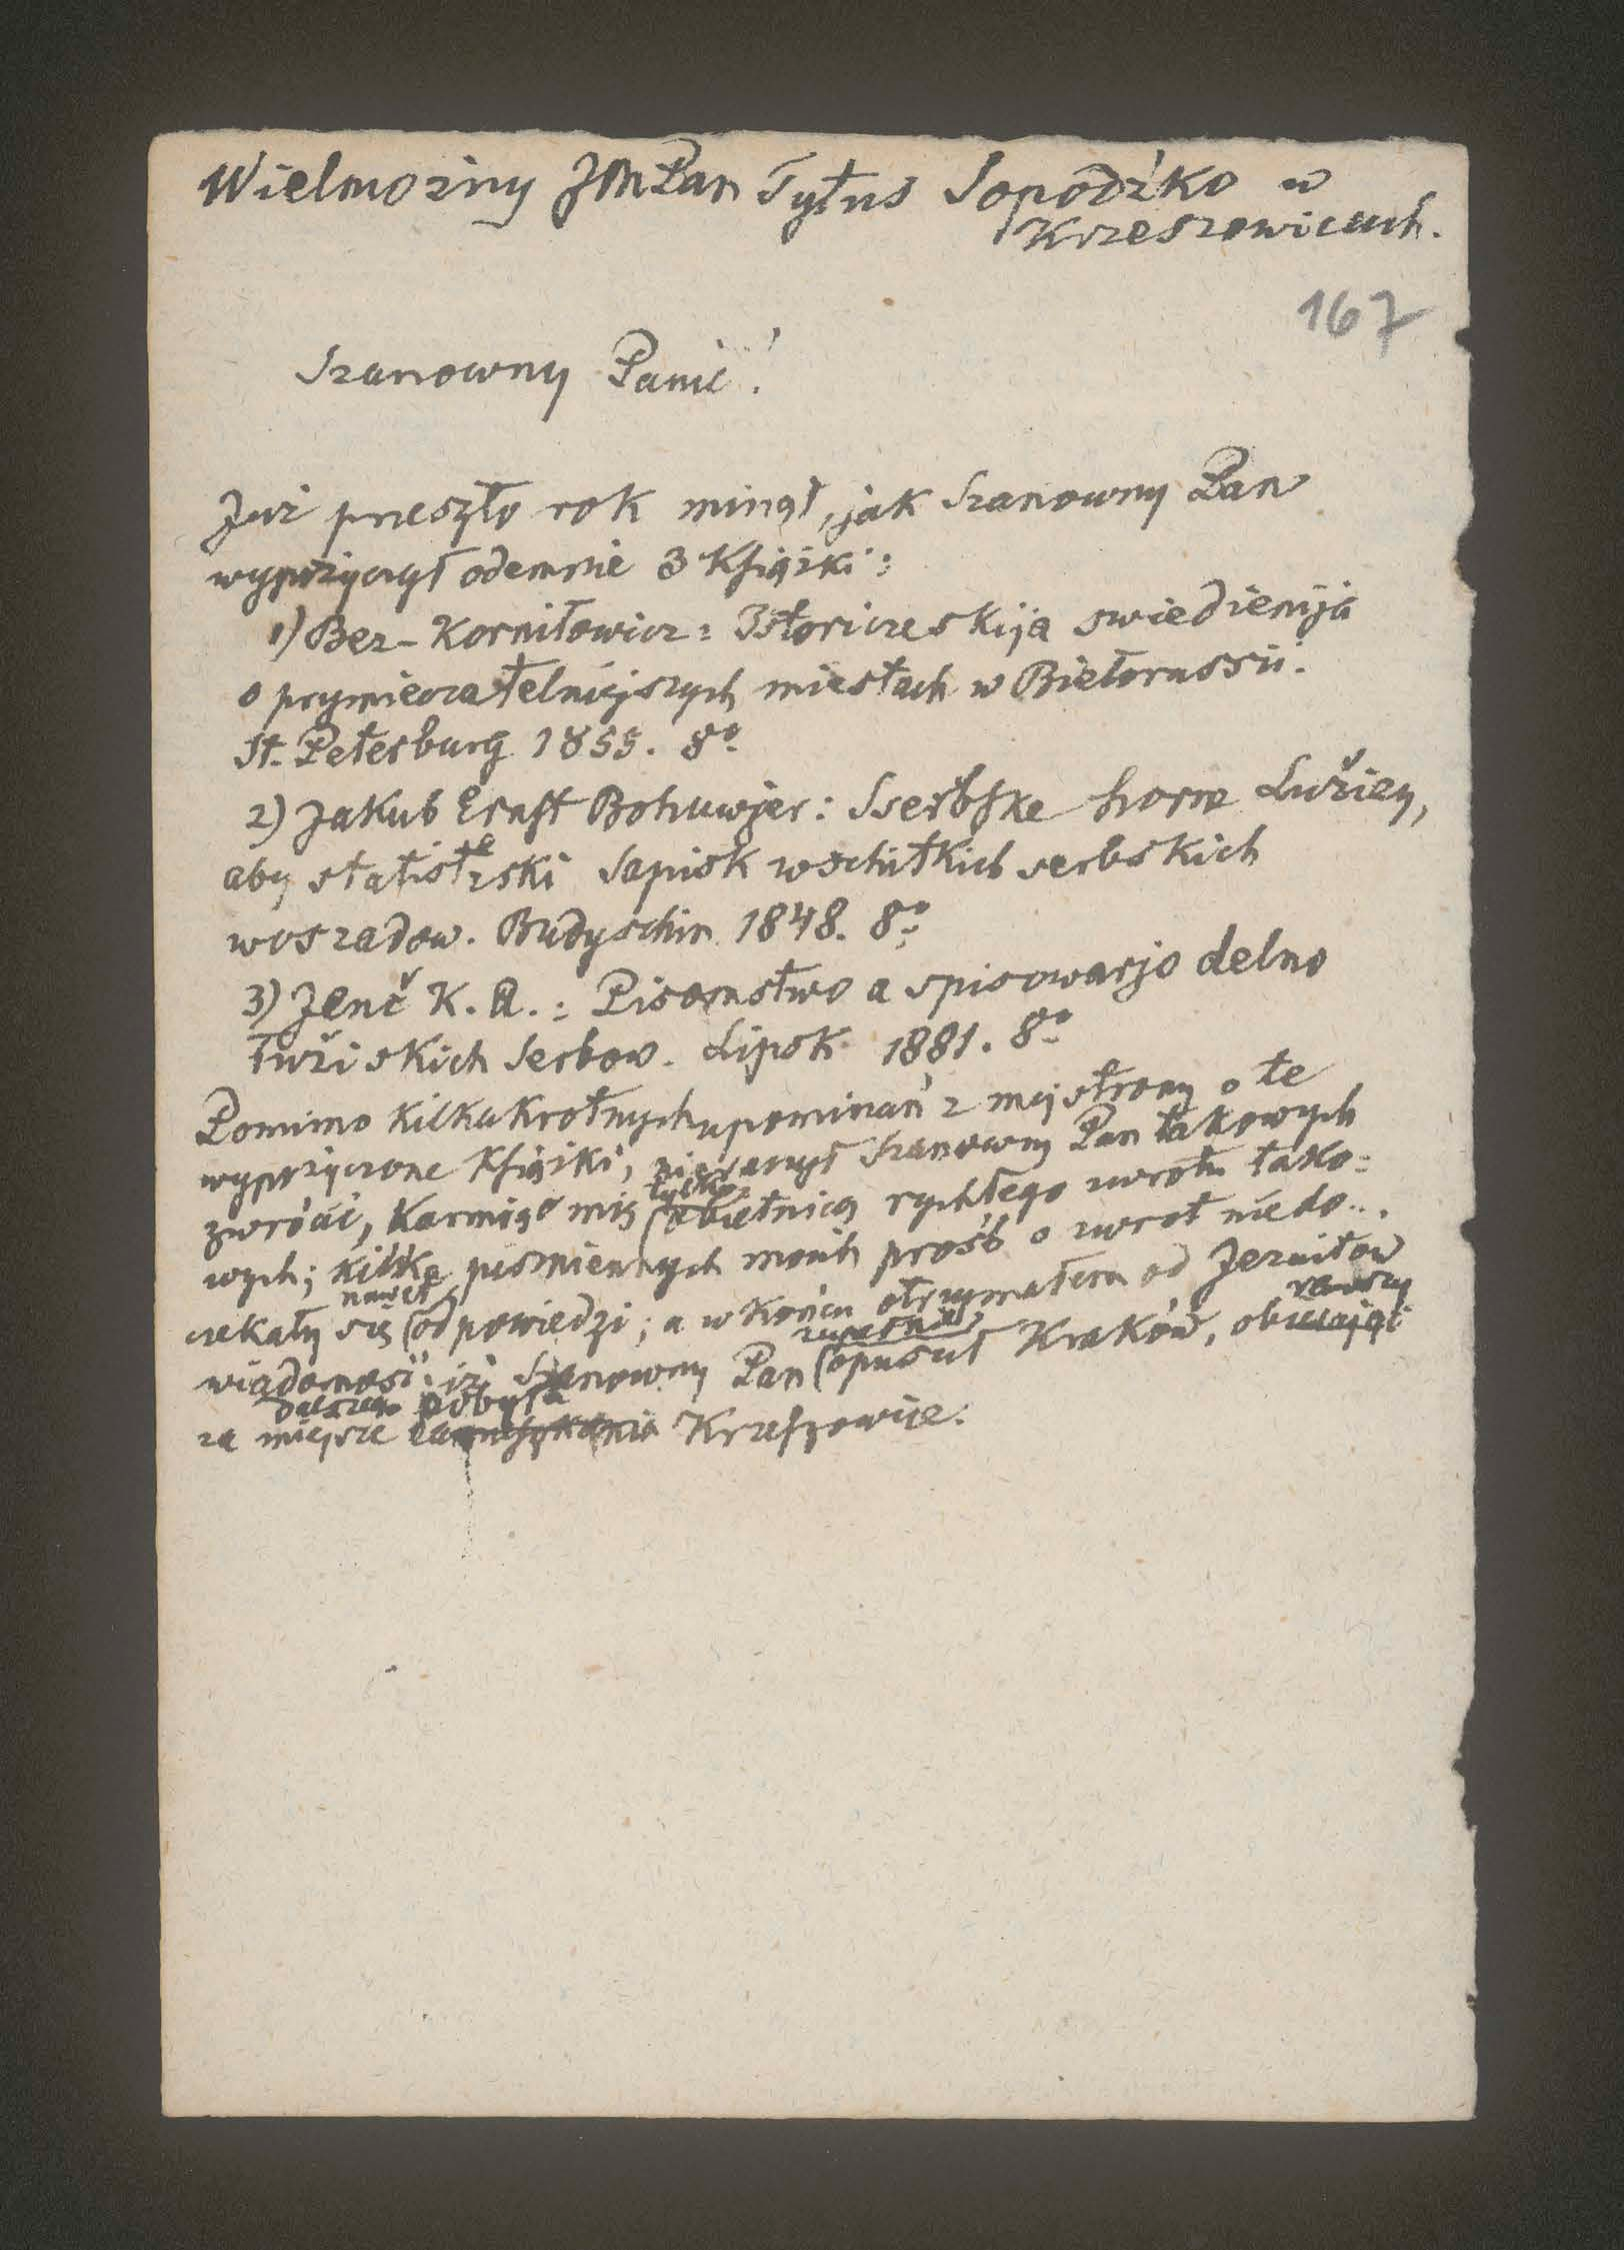 Wielmożny JMPan Tytus Sopodźko w
Krzeszowicach.
167
Szanowny Panie!
Już przeszło rok minął, jak Szanowny Pan
wypożyczył odemnie 3 Książki:
1) Bez-Korniłowicz: Istoriczeskija swiedienija
o prymieczatelniejszych miestach w Biełorussii.
St. Petersburg 1855. 8o
2) Jakub Ernst Bohuwjer: Sserbske horne Lužicy,
aby statistiski Sapisk wschitkich serbskich
woszadow. Budyschin 1848. 8o
3) Jenč K. A.: Pisomstwo a spisowarjo delno
łužiskich Serbow. Lipsk 1881. 8o
Pomimo kilkakrotnych upominań z mej strony o te
wypożyczone Książki, nieraczył Szanowny Pan takowych
zwrócić, karmiąc mię tylko obietnicą rychłego zwrotu tako=
wych; kilka piśmiennych moich prośb o zwrot niedo...
czekały się nawet odpowiedzi; a w końcu otrzymałem od Jezuitow
wiadomość: iż Szanowny Pan zupełnie opuścił Kraków, obierając
za miejsce dalszego pobytu zamieszkania Krzeszowice.